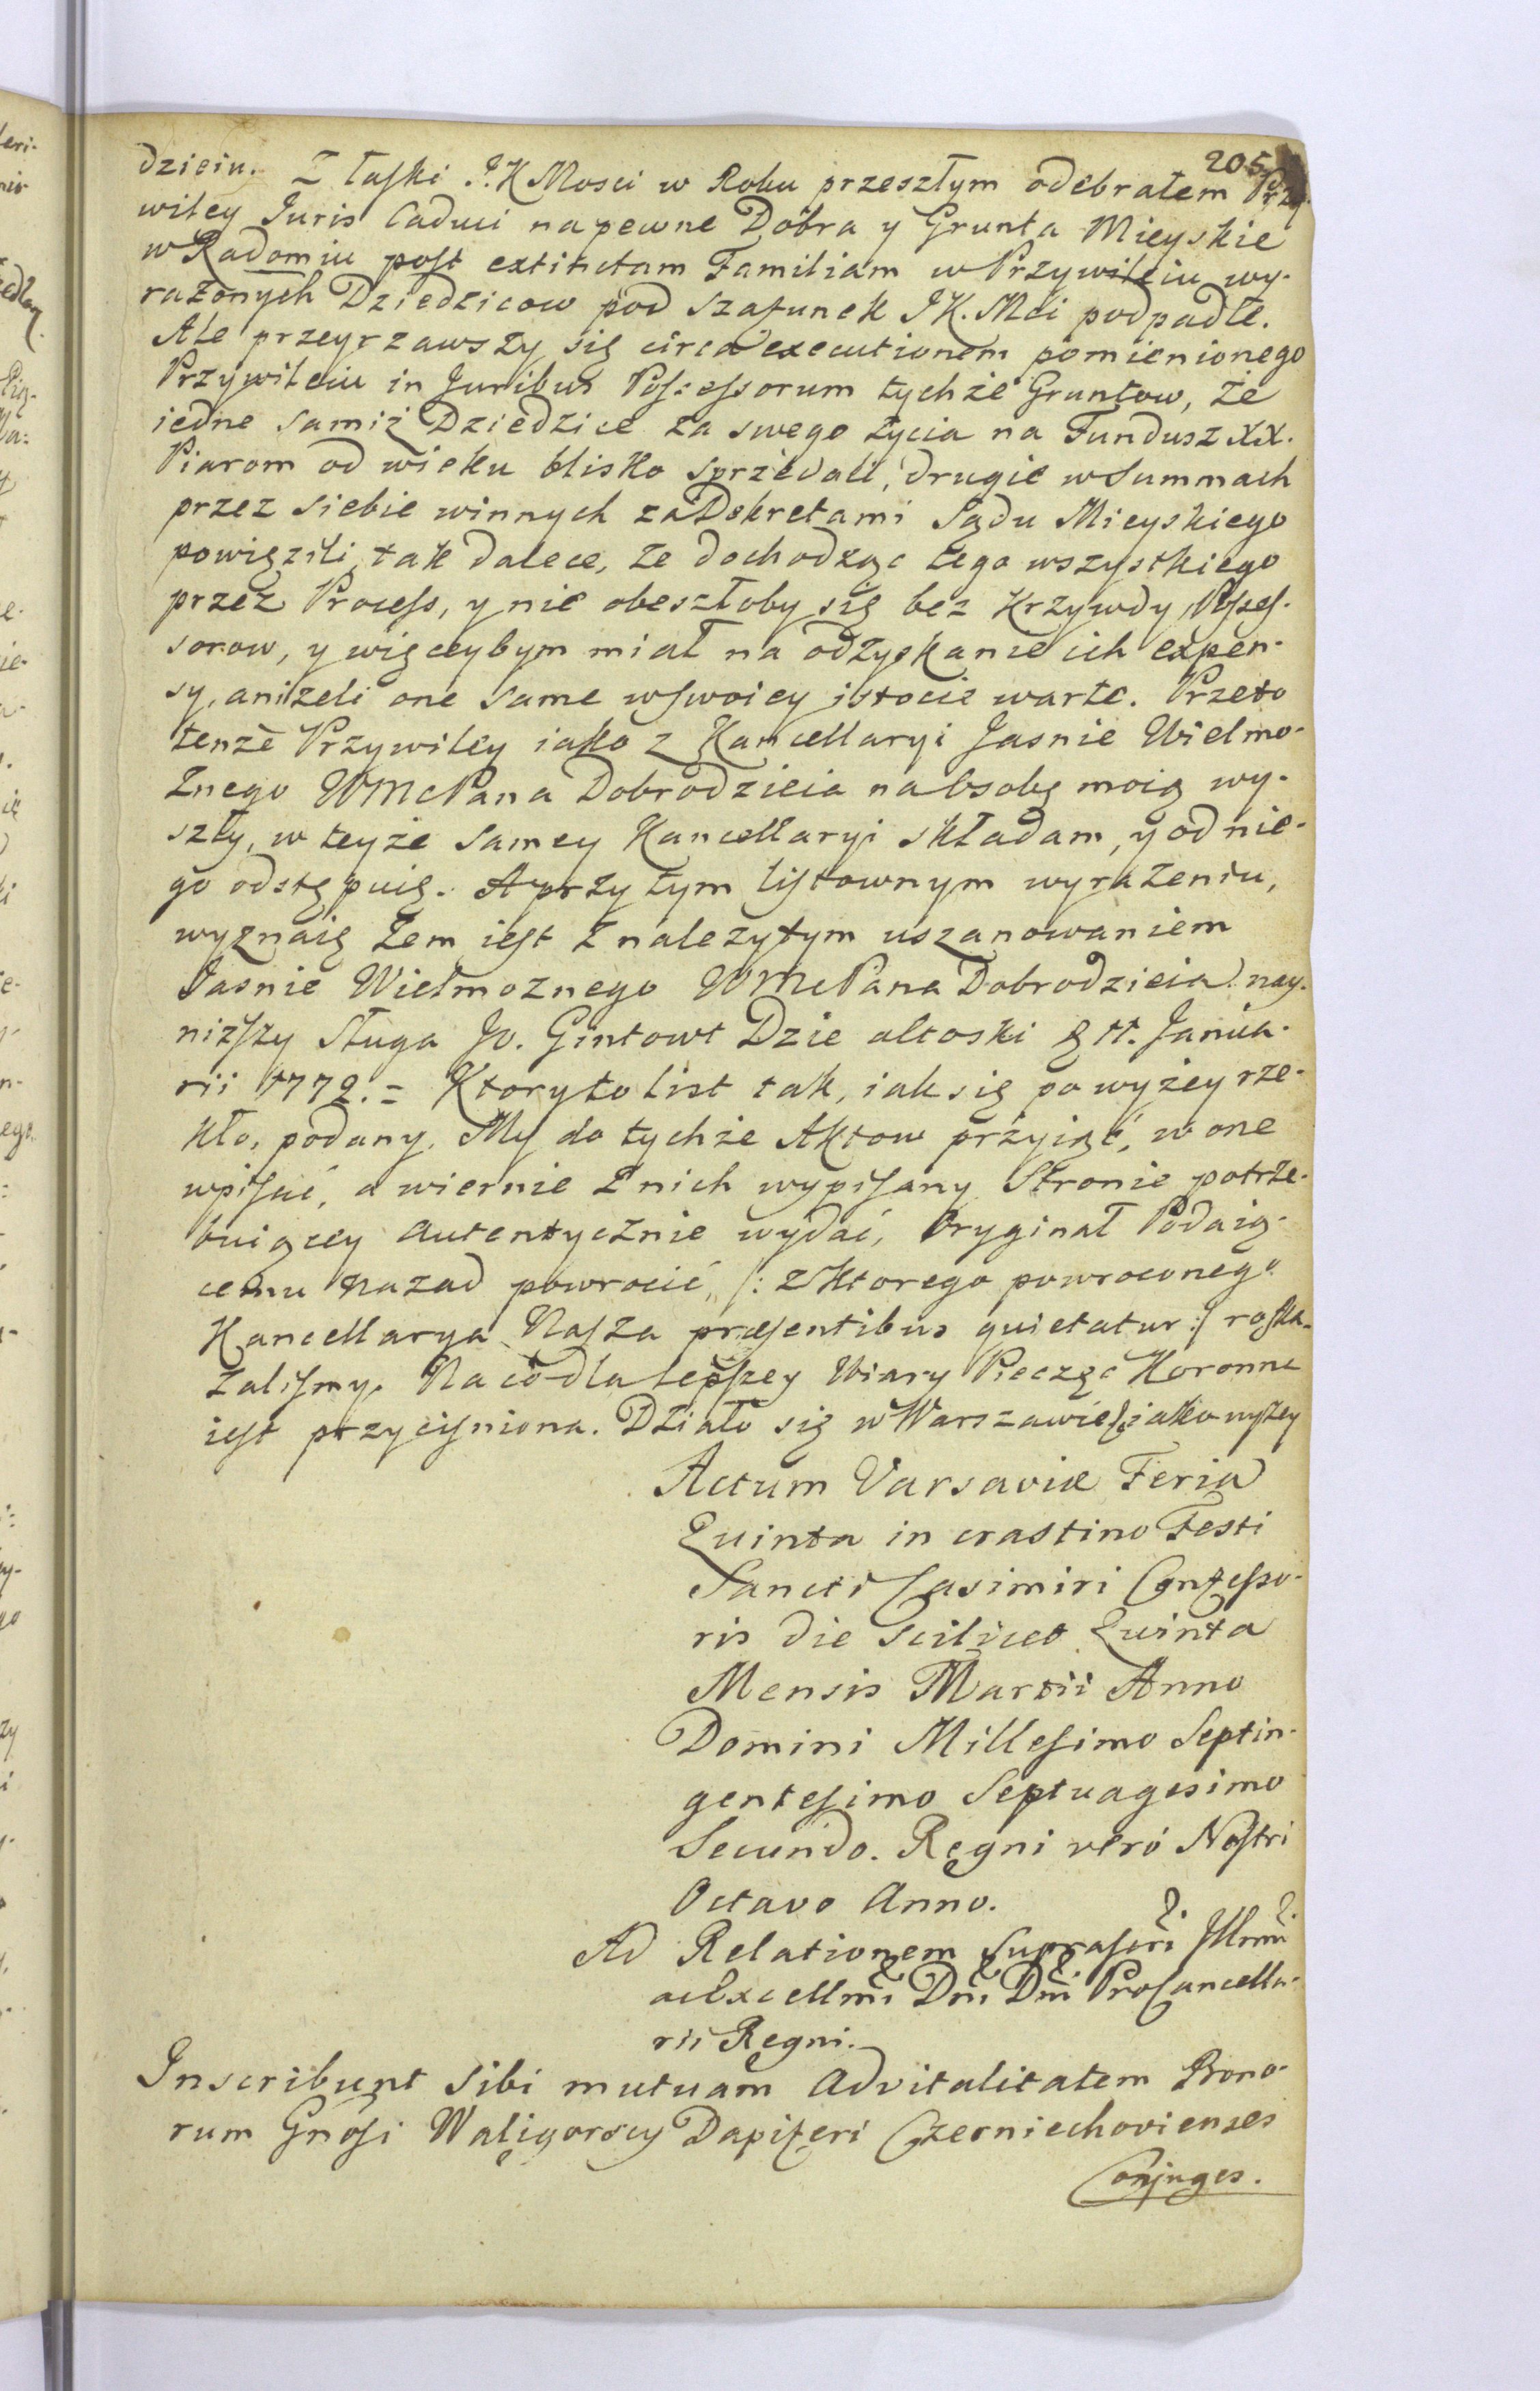 205
dzieiu. Z łaski J.K Mosci w Roku przeszłym odebrałem Przy-
wiley Juris Caduci na pewne Dobra y Grunta Mieyskie
w Radomiu post extinctam Familiam w Przywileiu wy-
rażonych Dziedzicow pod szafunek JK. Mci podpadłe.
Ale przeyrzawszy się circa executionem pomienionego
Przywileiu in Juribus Possessorum tychże Gruntow, że
iedne samiż Dziedzice za swego życia na Fundusz XX.
Piarom od wieku blisko sprzedali, drugie w Summach
przez siebie winnych za Dekretami Sądu Mieyskiego
powięzili, tak dalece, że dochodząc tego wszystkiego
przez Process, y nie obeszłoby się bez Krzywdy Posses-
sorow, y więceybym miał na odzyskanie ich expen-
sy, aniżeli one same w swoiey istocie warte. Przeto
tenże Przywiley iako z Kancellaryi Jasnie Wielmo-
żnego WMcPana Dobrodzieia na Osobę moię wy-
szły, w teyże samey Kancellaryi składam, y od nie-
go odstępuię. A przy tym listownym wyrażeniu,
wyznaię żem iest z należytym uszanowaniem
Jasnie Wielmoznego WMcPana Dobrodzieia nay-
niższy Sługa Jo. Gintowt Dzie ałtoski 11. Janua-
rii 1772. = Ktory to list tak, iak się powyżey rze-
kło, podany. My do tychże Aktow przyiąć, w one
wpisać, a wiernie z nich wypisany Stronie potrze-
buiącey autentycznie wydać, Oryginał Podaią-
cemu nazad powrocić, /: z ktorego powroconego
Kancellarya Nasza præsentibus quietatur :/ roska-
zaliśmy. Na co dla lepszey Wiary Pieczęć Koronna
iest przyciśniona. Działo się w Warszawie jako wyżey
Actum Varsaviæ Feria
Quinta in crastino Festi
Sancti Casimiri Confesso-
ris die scilicet Quinta
Mensis Martii Anno
Domini Millesimo Septin-
gentesimo Septuagesimo
Secundo. Regni vero Nostri
Octavo Anno.
Ad Relationem suprascri Illrmi
ac Excellmi Dni Dni ProCancella-
rii Regni.
Inscribunt sibi mutuam Advitalitatem Bono-
rum Gnosi Waligorscy Dapiferi Czerniechovienses
Conjuges.